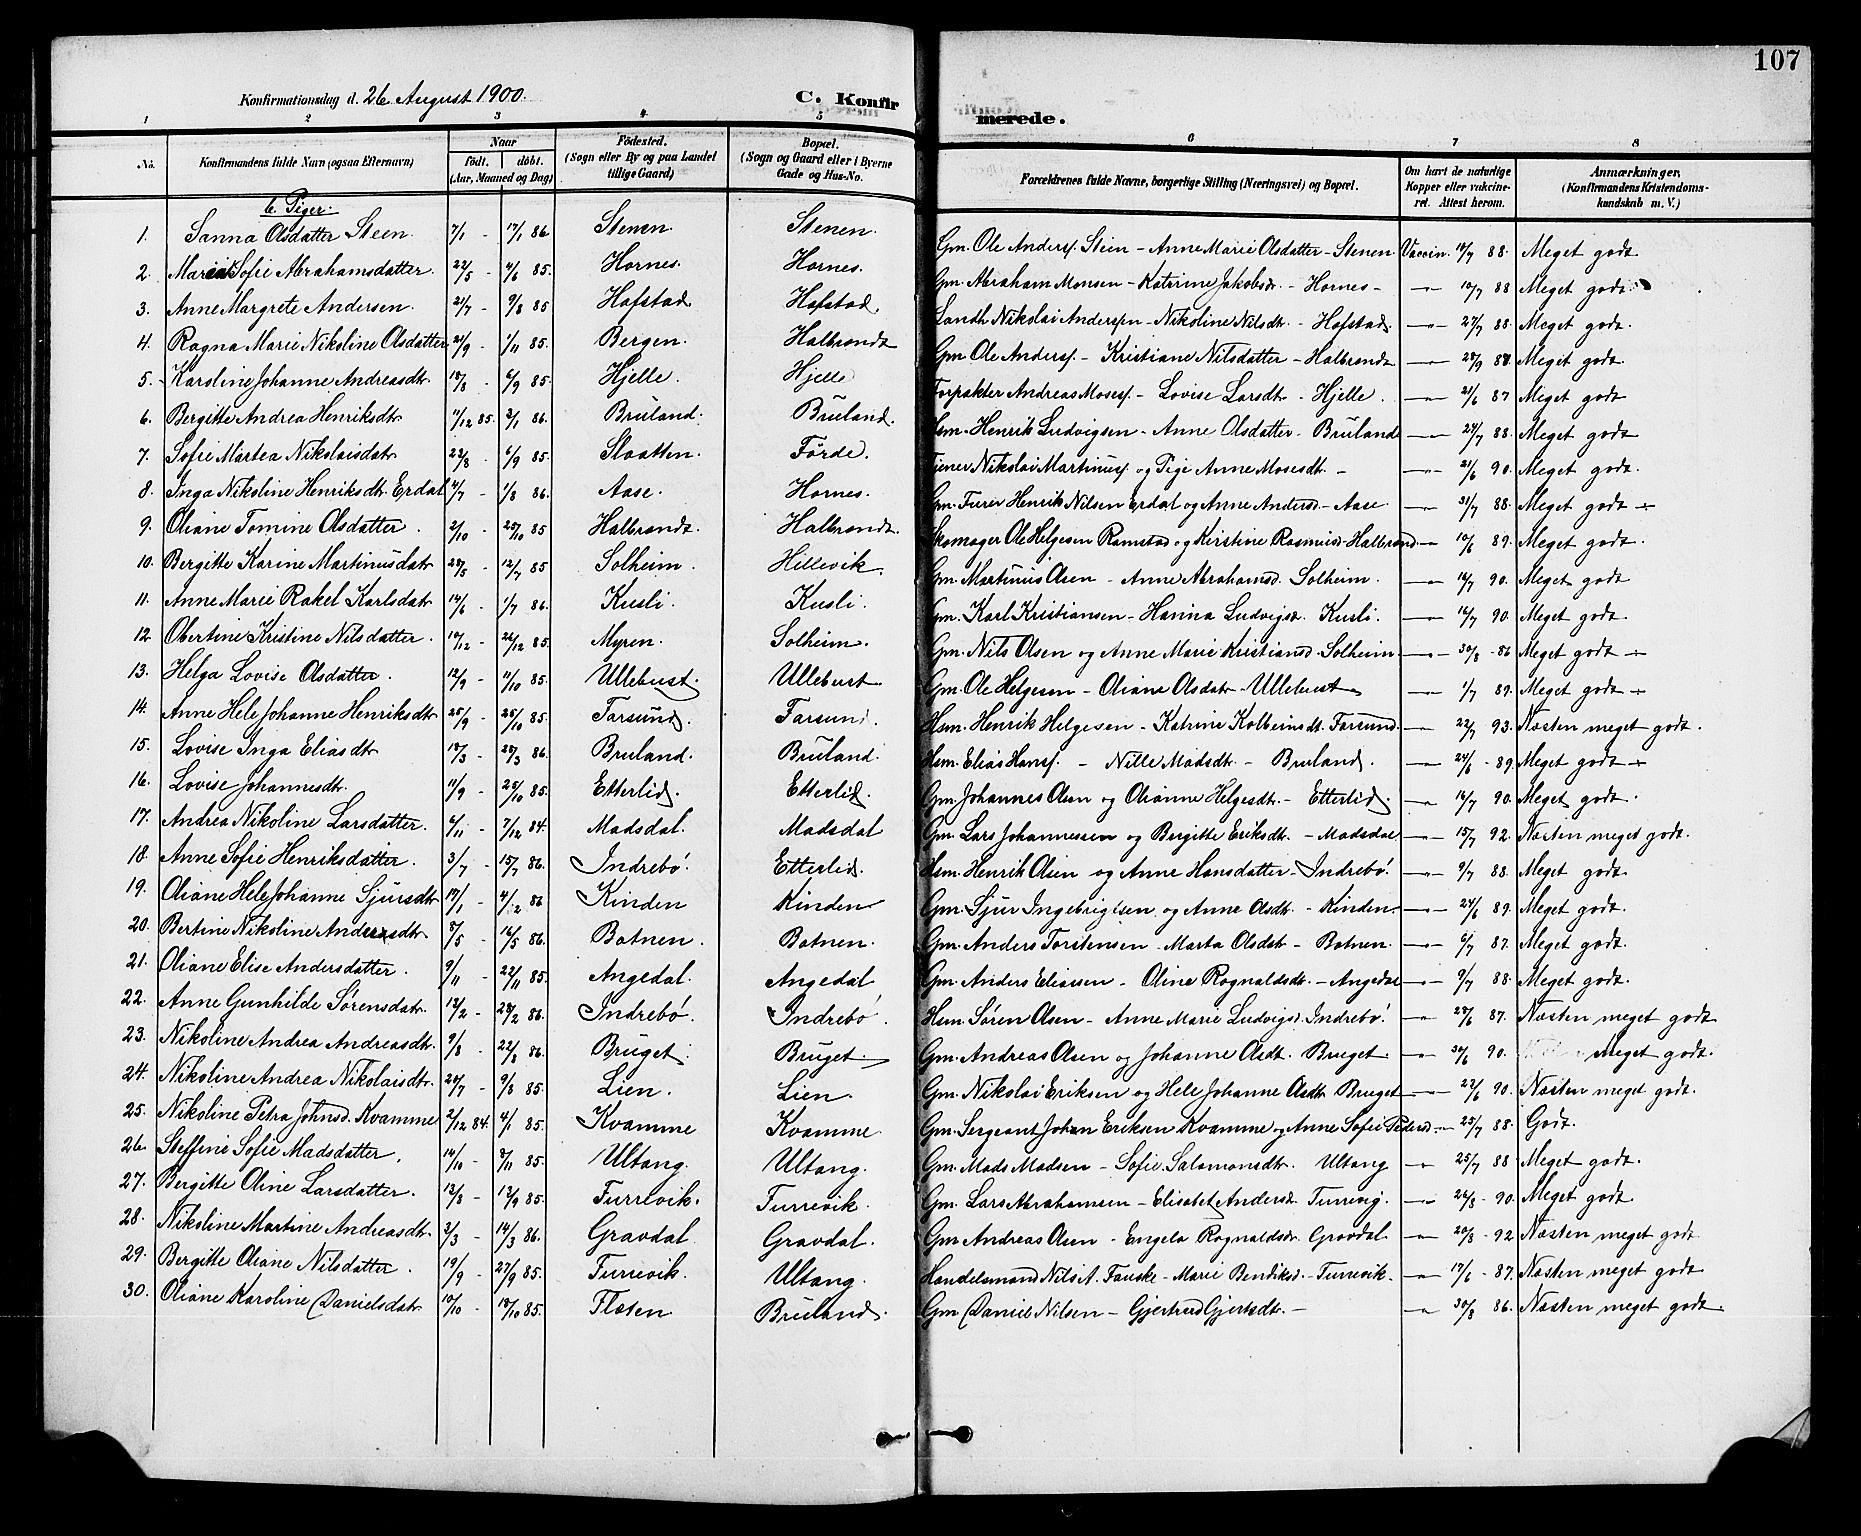 107
Konfirmationsdag d. 26 August 1900. C. Konfirmerede.
1 2 3 4 5 6 7 8
No. Konfirmandens fulde Navn (ogsaa Efternavn) Naar født. døbt. (Aar, Maaned og Dag) Fødested. (Sogn eller By og paa Landet tillige Gaard) Bopæl. (Sogn og Gaard eller i Byerne Gade og Hus-No. Forældrenes fulde Navne, borgerlige Stilling (Næringsvei) og Bopæl. Om havt de naturlige Kopper eller vakcineret. Attest herom. Anmærkninger. (Konfirmandens Kristendomskundskab m. V.)
b. Piger.
1. Sanna Olsdatter Steen 7/1 - 17/1 86. Stenen. Stenen. Gm. Ole Anders. Steen - Anne Marie Olsdatter - Stenen Vaccin. 88. Meget godt
2. Marie Sofie Abrahamsdatter. 22/5 - 4/6 85. Hornes. Hornes. Gm. Abraham Monsen - Katrine Jakobsdr. - Hornes - 88 Meget godt
3. Anne Margrete Andersen. 21/7 - 9/8 85 Hafstad Hafstad. Landh. Nikolai Andersen - Nikoline Nilsdt. - Hafstad. 27/7 88. Meget godt.
4. Ragna Marie Nikoline Olsdatter 21/9 - 1/11 85. Bergen. Halbrendt Gm. Ole Anders. - Kristiane Nilsdatter - Halbrendt Meget godt
5. Karoline Johanne Andreasdt. 18/8 - 6/9 85. Hjelle. Hjelle Forpakter Andreas Moses. - Lovise Larsdt. - Hjelle. 21/6 87 Meget godt
6. Bergitte Andrea Henriksdt 11/12 85. 3/1 86. Bruland. Bruland. Hsm. Henrik Ludvigsen - Anne Olsdatter - Bruland 88. Meget godt
7. Sofie Martea Nikolaisdatr 23/8 - 6/9 85. Slaatten. Förde. Tjener Nikolai Martinus. og Pige Anne Mosesdt. - 21/6 90. Meget godt.
8. Inga Nikoline Henriksdt. Erdal 4/7 - 1/8 86. Aase. Hornes. Gm. Furer Henrik Nilsen Erdal og Anne Andersd. - Aase 31/7 88. Meget godt
9. Oliane Tomine Olsdatter. 2/10 - 25/10 85 Halbrendt. Halbrendt. Skomager Ole Helgesen Ramstad og Kirstine Rasmusd - Halbrend 10/6 89. Meget godt.
10. Bergitte Karine Martinusdatr 28/5 - 12/7 85 Solheim. Hillevik. Gm. Martinus Olsen - Anne Abrahamsd. Solheim. 16/7 90. Meget godt
11. Anne Marie Rakel Karlsdatr 14/6 - 1/7 86. Kusli. Kusli. Gm. Karl Kristiansen - Hanna Ludvigsd. Kusli. 16/7 90. Meget godt
12. Obertine Kristine Nilsdatter. 10/12 - 26/12 85. Myren. Solheim. Gm. Nils Olsen og Anne Marie Kristiansd. Solheim. 30/8 - 86 Meget godt
13. Helga Lovise Olsdatter. 12/9 - 11/10 85. Ullebust. Ullebust Gm. Ole Helgesen - Oliane Olsdatr - Ullebust 1/7 89. Meget godt
14. Anne Hele Johanne Henriksdt 25/9 - 25/10 85. Farsund. Farsund. Hsm. Henrik Helgesen - Katrine Kolbeinsdt. Farsund. 22/7 93. Næsten meget godt.
15. Lovise Inga Eliasdt 18/3 - 28/3 86. Bruland. Bruland. Hsm. Elias Hans. - Nille Madsdt. - Bruland. 24/6 - 89. Meget godt
16. Lovise Johannesdt. 11/9 - 25/10 85. Etterlid. Etterlid. Gm. Johannes Olsen og Olianne Helgesdt. - Etterlid. 16/7 90. Meget godt.
17. Andrea Nikoline Larsdatter. 6/11 - 7/12 84. Madsdal. Madsdal Gm. Lars Johannessen og Bergitte Eriksdt. - Madsdal 15/7 92. Næsten meget godt.
18. Anne Sofie Henriksdatter. 3/7 - 15/7 86. Indrebö. Etterlid. Hsm. Henrik Olsen og Anne Hansdatter - Indrebö. 9/7 88. Meget godt
19. Oliane Hele Johanne Sjursdt 17/1 - 4/2 86 Kinden Kinden Gm. Sjur Ingebrigtsen og Anne Olsdt. - Kinden. 24/6 89. Meget godt.
20. Bertine Nikoline Andersdt 8/5 - 16/5 86. Botnen. Botnen. Gm. Anders Torstensen - Marta Olsdat - Botnen. 6/7 87. Meget godt.
21. Oliane Elise Andersdatter. 9/11 - 22/11 85. Angedal. Angedal Gm. Anders Eliasen - Oline Ragnaldsdt. - Angedal 9/7 88. Meget godt.
22. Anne Gunhilde Sörensdatr. 13/2 - 28/2 86. Indrebö. Indrebö. Hsm. Sören Olsen - Anne Marie Ludvigsd. Indrebö. 28/6 87. Næsten meget godt
23. Nikoline Andrea Andreasdt. 9/8 - 22/8 86. Bruget. Bruget. Gm. Andreas Olsen og Johanne Olsdt. Bruget. 30/6 90. meget godt.
24. Nikoline Andrea Nikolaisdt. 20/7 - 9/8 85. Lien. Lien. Gm. Nikolai Eriksen og Hele Johanne Olsdt Bruget 22/6 90. Næsten meget godt.
25. Nikoline Petra Johnsd. Kvamme 2/12 84. 4/1 85. Kvamme Kvamme Gm. Sergeant Johan Eriksen Kvamme og Anne Sofie Pedersd. 25/7 88. Godt.
26. Steffine Sofie Madsdatter. 14/10 - 8/11 85. Ultang. Ultang. Gm. Mads Madsen - Sofie Salamonsdt. Ultang 25/7 88 Meget godt.
27. Bergitte Oline Larsdatter. 13/8 - 13/9 85. Furrevik. Furrevik. Gm. Lars Abrahamsen - Elisabet Andersd. Furrevig. 26/8 - 90. Meget godt.
28. Nikoline Martine Andreasdt. 3/3 - 14/3 86. Gravdal Gravdal. Gm. Andreas Olsen - Engela Ragnaldsdr. Gravdal 20/8 - 92 Næsten meget godt
29. Bergitte Oliane Nilsdatter. 19/9 - 27/9 85. Furrevik. Ultang. Handelsmand Nils A. Fauske - Marie Bendiksd. - Furrevik. 17/6 - 87. Næsten meget godt
30. Oliane Karoline Danielsdatr 10/10 - 18/10 85. Flaten Bruland. Gm Daniel Nilsen - Gjertrud Gjertsdt. - 30/8 86. Næsten meget godt.